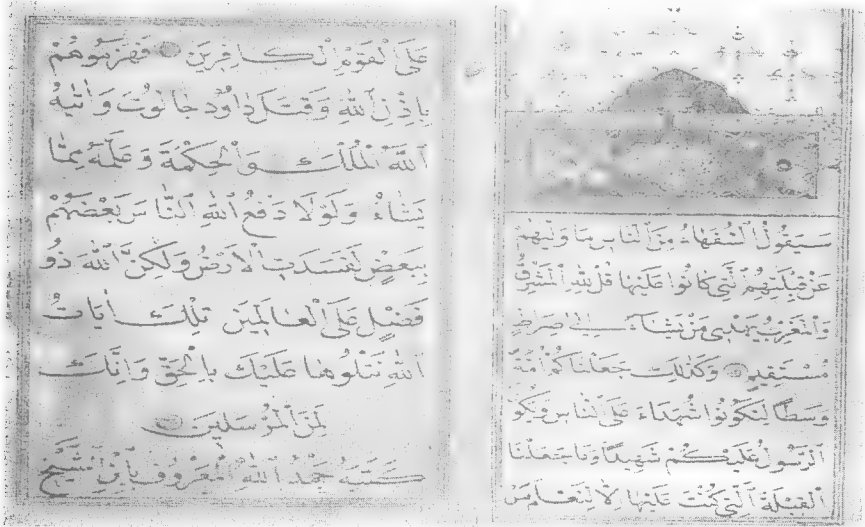 سَيَقُولُ ٱلسُّفَهَاءُ مِنَ ٱلنَّاسِ مَا وَلّٰيهُمْ
عَنْ قِبْلَتِهِمُ ٱلَّتِي كَانُوا عَلَيْهَا قُلْ لِلّٰهِ ٱلْمَشْرِقُ
وَٱلْمَغْرِبُ يَهْدِي مَنْ يَشَاءُ إِلٰى صِرَاطٍ
مُسْتَقِيمٍ وَكَذٰلِكَ جَعَلْنَاكُمْ أُمَّةً
وَسَطًا لِتَكُونُوا شُهَدَاءَ عَلَى ٱلنَّاسِ وَيَكُونَ
ٱلرَّسُولُ عَلَيْكُمْ شَهِيدًا وَمَا جَعَلْنَا
ٱلْقِبْلَةَ ٱلَّتِي كُنْتَ عَلَيْهَا إِلَّا لِنَعْلَمَ مَنْ
عَلَى ٱلْقَوْمِ ٱلْكَافِرِينَ فَهَزَمُوهُمْ
بِإِذْنِ ٱللّٰهِ وَقَتَلَ دَاوُدُ جَالُوتَ وَاٰتٰيهُ
ٱللّٰهُ ٱلْمُلْكَ وَٱلْحِكْمَةَ وَعَلَّمَهُ مِمَّا
يَشَاءُ وَلَوْلَا دَفْعُ ٱللّٰهِ ٱلنَّاسَ بَعْضَهُمْ
بِبَعْضٍ لَفَسَدَتِ ٱلْاَرْضُ وَلٰكِنَّ ٱللّٰهَ ذُو
فَضْلٍ عَلَى ٱلْعَالَمِينَ تِلْكَ اٰيَاتُ
ٱللّٰهِ نَتْلُوهَا عَلَيْكَ بِالْحَقِّ وَاِنَّكَ
لَمِنَ ٱلْمُرْسَلِينَ
كَتَبَهُ حَمْدُ ٱللّٰهِ ٱلْمَعْرُوفُ بِابْنِ ٱلشَّيْخِ